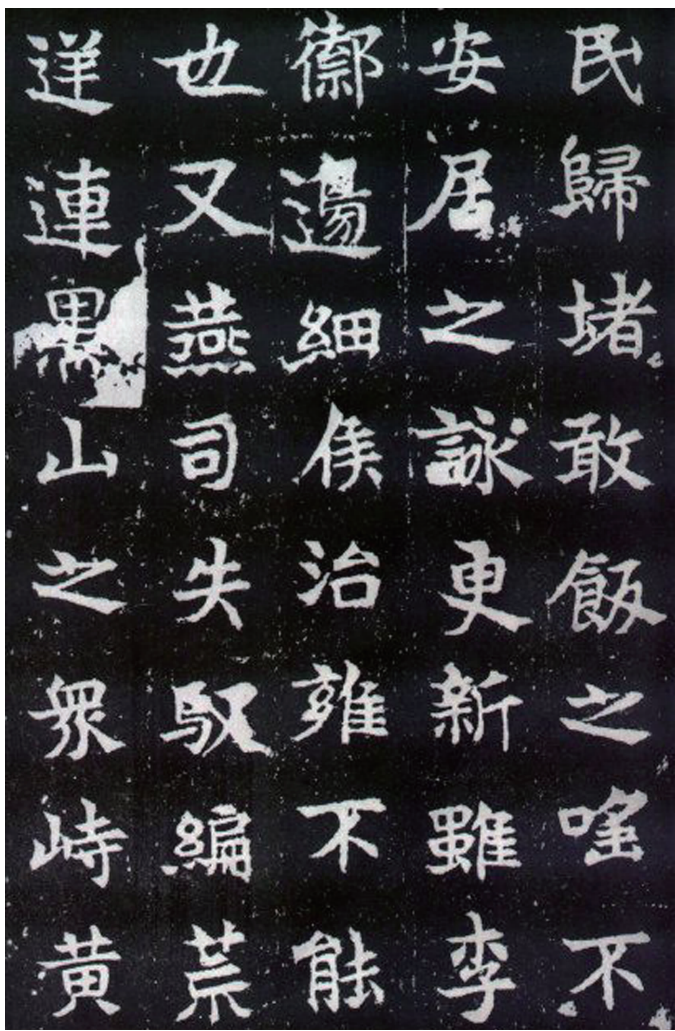 民歸堵敢飯之唯不
安居之詠更新雖李
禦邊細侯治雍不能
也又燕司失馭編荒
逆連黑山之眾峙黃